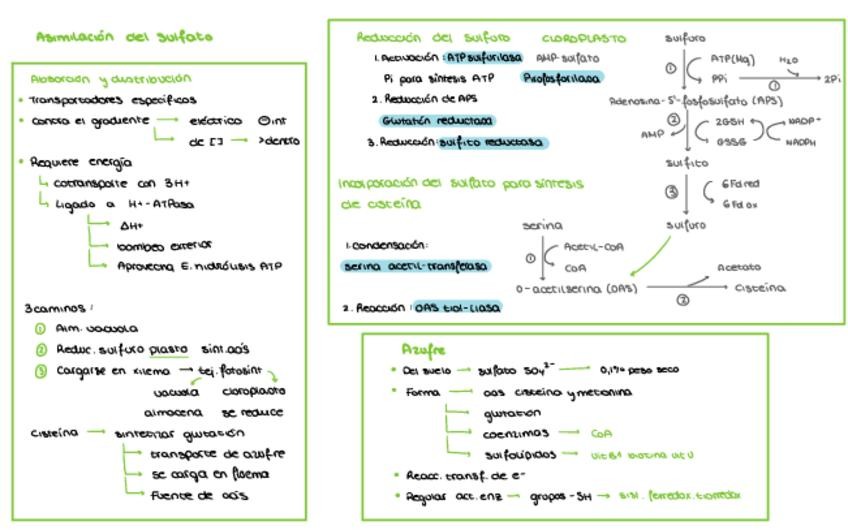 Asimilación del sulfato
Absorción y distribución
• Transportadores específicos
• Contra el gradiente → eléctrico ⊖int
↳ de [ ] → >dentro
• Requiere energía
↳ cotransporte con 3H+
↳ Ligado a H+-ATPasa
→ ΔH+
→ bombeo exterior
→ Aprovecha E. hidrólisis ATP
3 caminos:
① Alm. vacuola
② Reduc. sulfuro plasto sint. aa's
③ Cargarse en xilema → tej. fotosint
vacuola cloroplasto
almacena se reduce
Cisteína → sintetizar glutatión
→ transporte de azufre
→ se carga en floema
→ fuente de aa's
Reducción del sulfuro CLOROPLASTO
1. Activación: ATP sulfurilasa AMP-sulfato
Pi para síntesis ATP Pirofosforilasa
2. Reducción de APS
Glutatión reductasa
3. Reducción: sulfito reductasa
sulfuro
① ATP(Mg) H2O
PPi → 2Pi
①
Adenosina-5'-fosfosulfato (APS)
② 2GSH NADP+
AMP GSSG NADPH
sulfito
③ 6Fd red
6Fd ox
sulfuro
Incorporación del sulfato para síntesis
de cisteína
1. Condensación:
serina acetil-transferasa
2. Reacción: OAS tiol-liasa
serina
① Acetil-CoA
CoA
O-acetilserina (OAS) → Cisteína
Acetato
②
Azufre
• Del suelo → sulfato SO4²⁻ → 0,1% peso seco
• Forma → aas cisteína y metionina
→ glutatión
→ coenzimas → CoA
→ sulfolípidos → vit B1 biotina vit U
• Reacc. transf. de e-
• Regular act. enz → grupos -SH → sist. ferredox. tiorredox